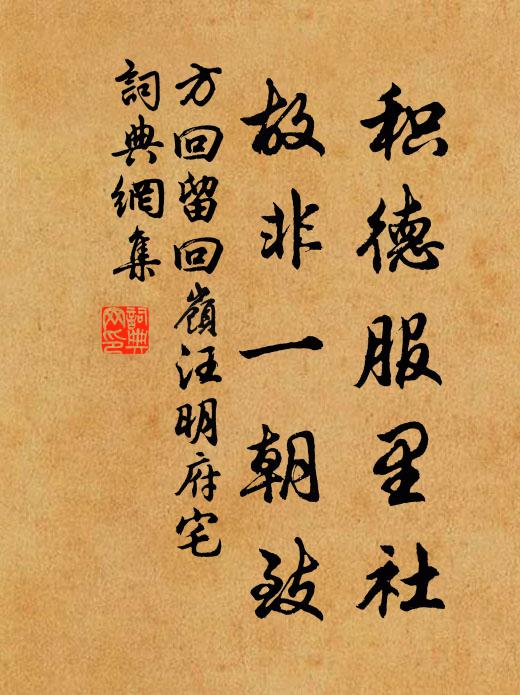 积德服里社
故非一朝致
方回留回嶺汪明府宅
詞典網集
詞典网印